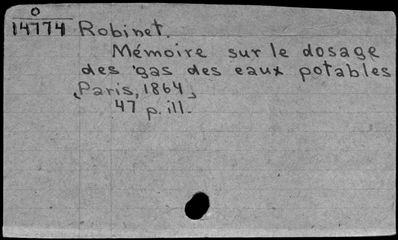 O
14774 Robinet.
Mémoire sur le dosage
des gas des eaux potables
[Paris, 1864]
47 p. ill.